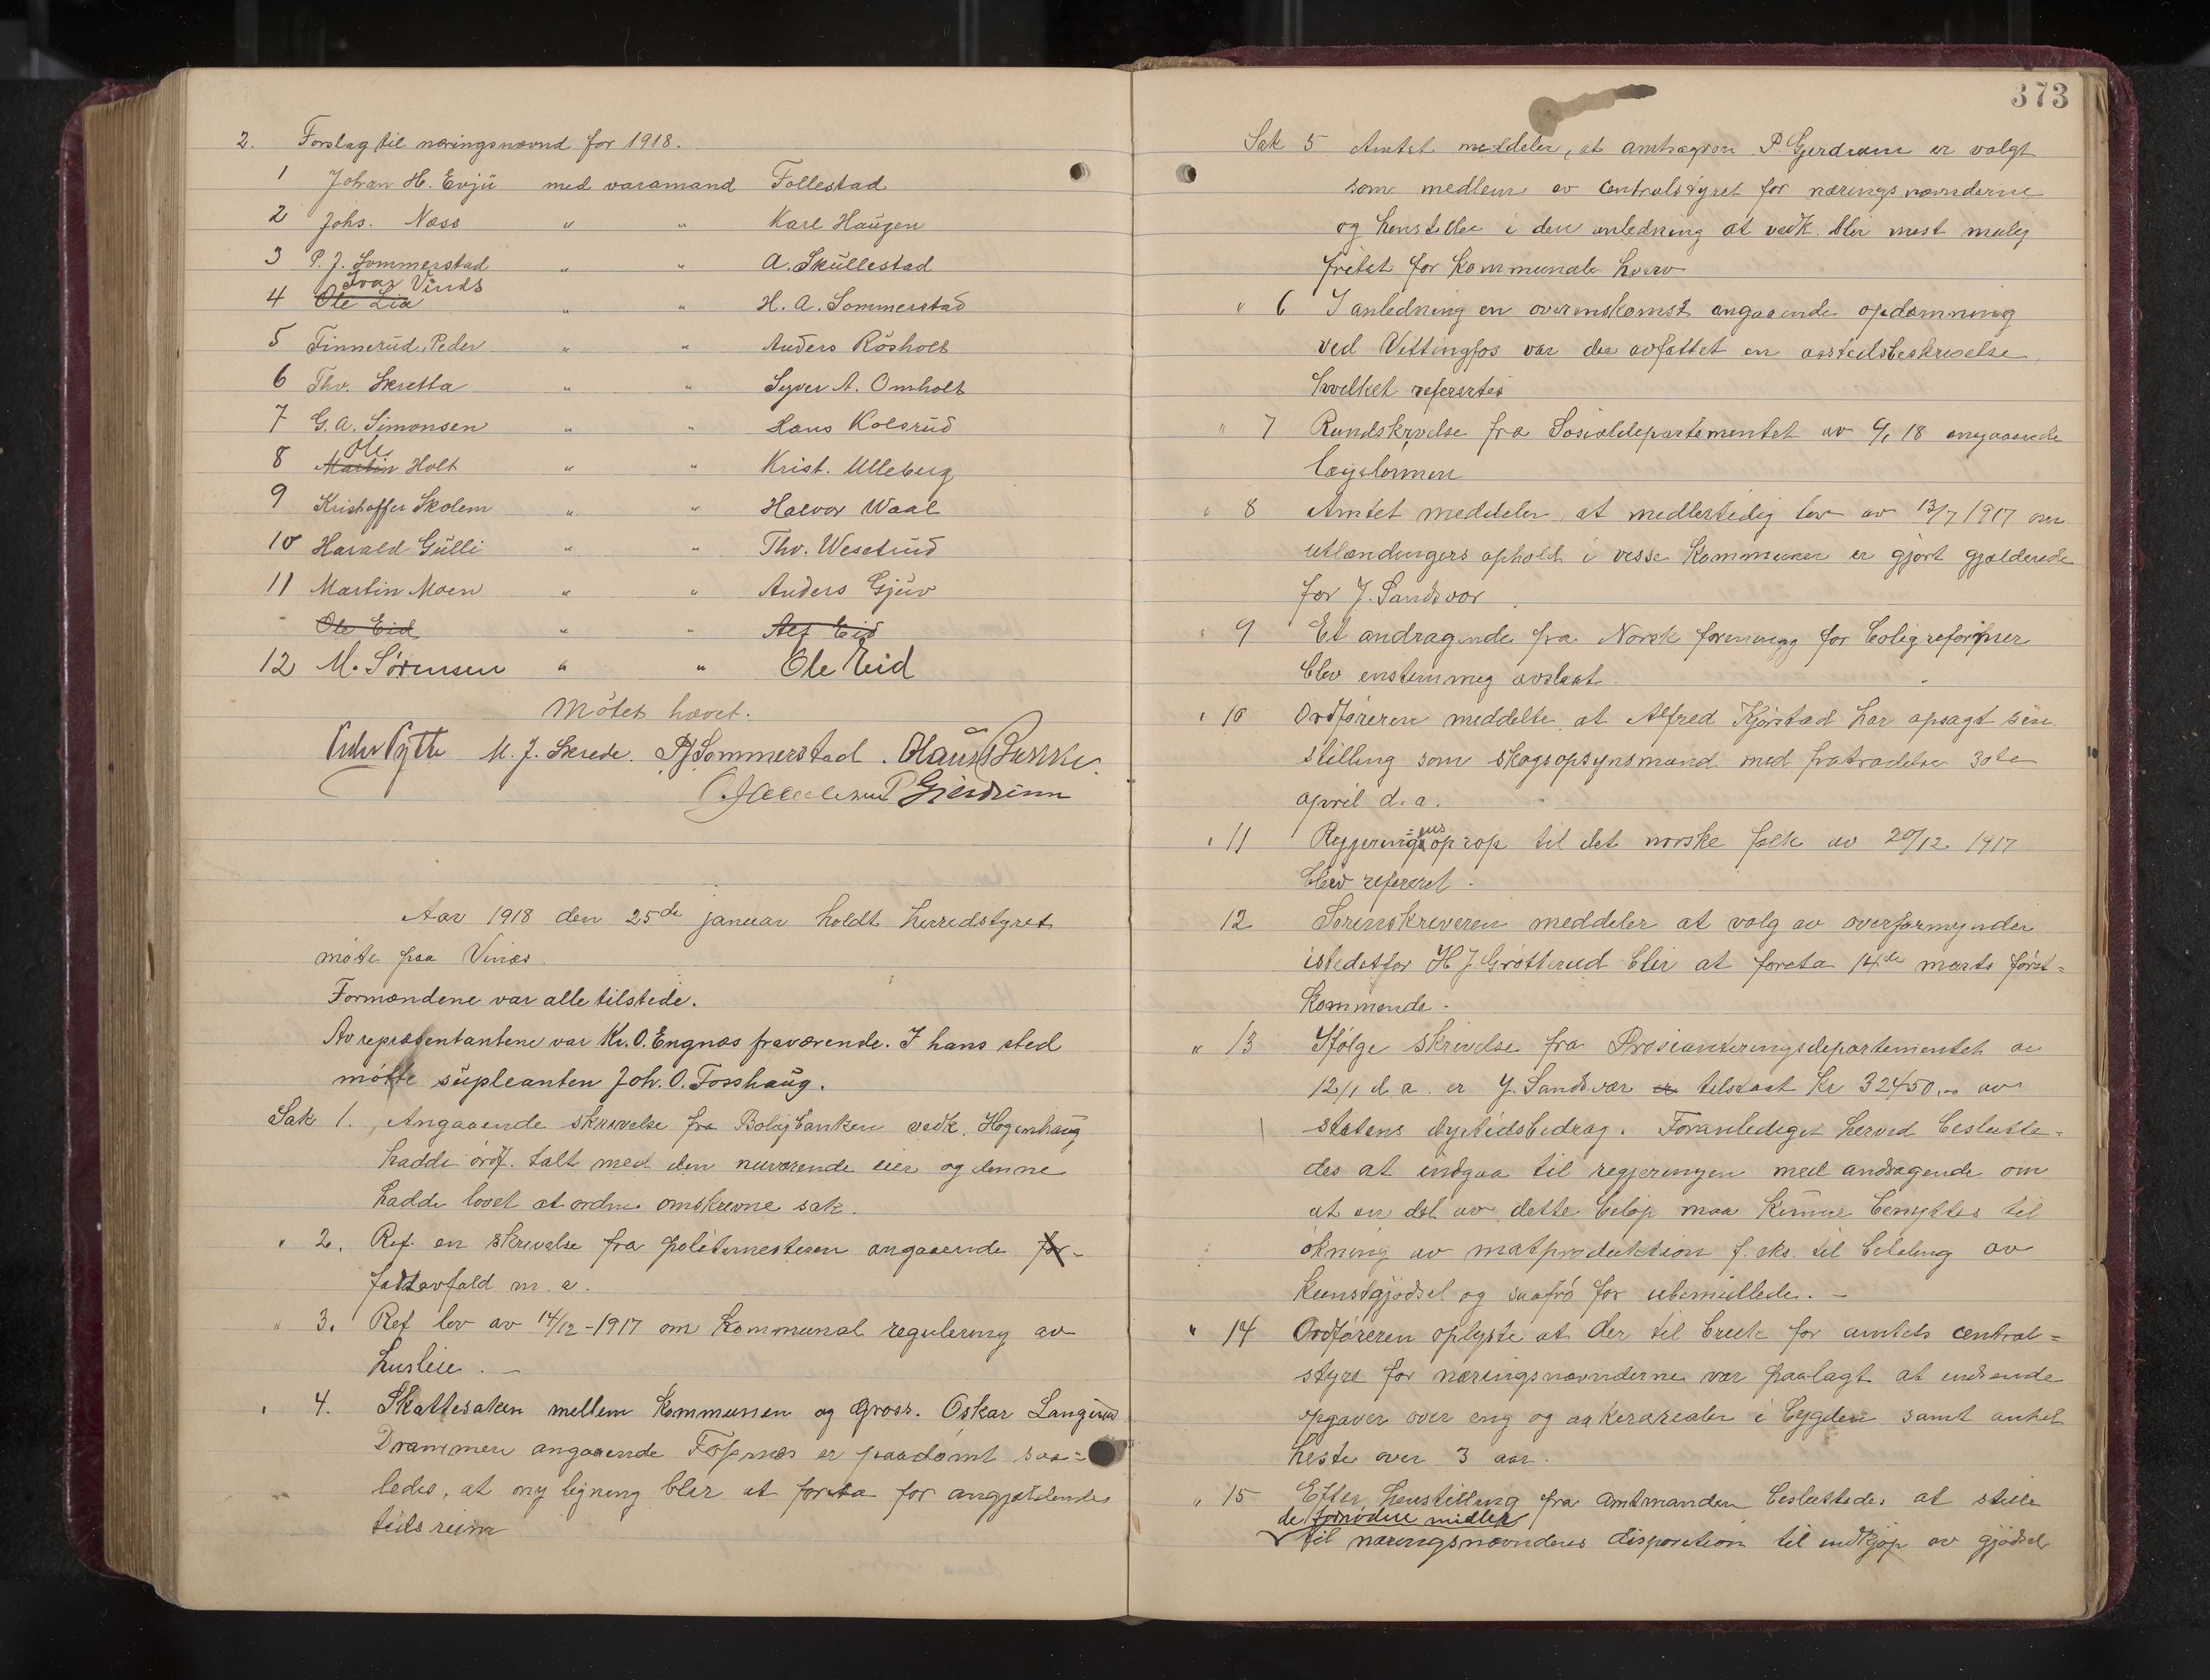 2. Forslag til næringsnævnd for 1918.
1 Johan H. Evju med varamand Follestad
2 Johs. Næss " " Karl Haugen
3 P. J. Sommerstad " " A. Skullestad
Ivar Vinds
4 Ole Lia " " H. A. Sommerstad
5 Tinnerud, Peder " " Anders Rösholt
6 Thv. Skretta " " Syver A. Omholt
7 G. A. Simonsen " " Hans Kolsrud
Ole
8 Martin Holt " " Krist. Ulleberg
9 Kristoffer Skolem " " Halvor Waal
10 Harald Gulli " " Thv. Weselrud
11 Martin Moen " " Anders Gjuv
" Ole Eid " " Alf Eid
12 M. Sørensen " " Ole Eid
Mötet hævet.
M. J. Skrede. PJSommerstad.
P Gjerdrum
Aar 1918 den 25de januar holdt herredstyret
møte paa Vinæs.
Formændene var alle tilstede.
Av repræsentantene var Kr. O. Engnæs fraværende. I hans sted
møtte supleanten Joh. O. Fosshaug.
Sak 1. Angaaende skrivelse fra Boligbanken vedk. Hogenhaug
hadde ordf. talt med den nuværende eier og denne
hadde lovet at ordne omskrevne sak.
" 2. Ref. en skrivelse fra politimesteren angaaende for-
fattavfald m. a.
" 3. Ref lov av 14/12-1917 om kommunal regulering av
husleie. -
" 4. Skattesaken mellem kommunen og gross. Oskar Langerud
Drammen angaaende Fossnæs er paadömt saa=
ledes, at ny ligning blir at foreta for angjældendes
tidsrum
373
Sak 5 Amtet meddeler, at amtsagron P. Gjerdrum er valgt
som medlem av centralstyret for næringsnævnderne
og henstiller i den anledning at vedk. blir mest mulig
fritat for kommunale hverv
" 6 I anledning en overenskomst angaaende opdæmning
ved Vittingfos var der avfattet en aastedsbeskrivelse,
hvilket referertes
" 7 Rundskrivelse fra Sosialdepartementet av 4/1 18 angaaende
lægelönnen
" 8 Amtet meddeler, at midlertidig lov av 13/7 1917 om
utlændingers ophold i visse kommuner er gjort gjældende
for Y. Sandsvær.
" 9 Et andragende fra Norsk forening for boligreformer
blev enstemmig avslaat.
" 10 Ordføreren meddelte at Alfred Kjörstad har opsagt sin
stilling som skogsopsynsmand med fratrædelse 30te
april d. a.
" 11 Regjeringens oprop til det norske folk av 20/12 1917
blev referert.
12 Sorenskriveren meddeler at valg av overformynder
istedetfor H J Grötterud blir at foreta 14de marts först=
kommende.
" 13 Ifølge skrivelse fra Provianteringsdepartementet av
12/1 d. a. er Y. Sandsvær er tilstaat Kr 32450.00 av
statens dyrtidsbidrag. Foranlediget herved beslutte=
des at indgaa til regjeringen med andragende om
at en del av dette belöp maa kunne benyttes til
ökning av matproduktion f. eks. til billiug av
kunstgjødsel og saafrö for ubemidlede. -
" 14 Ordføreren oplyste at der til bruk for amtets central=
styre for næringsnævnderne var paalagt at indsende
opgaver over eng og aakerarealer i bygden samt antal
heste over 3 aar.
" 15 Efter henstilling fra amtmanden besluttedes at stille
de fornødne midler
til næringsnævndens disposition til indkjöp av gjødsel